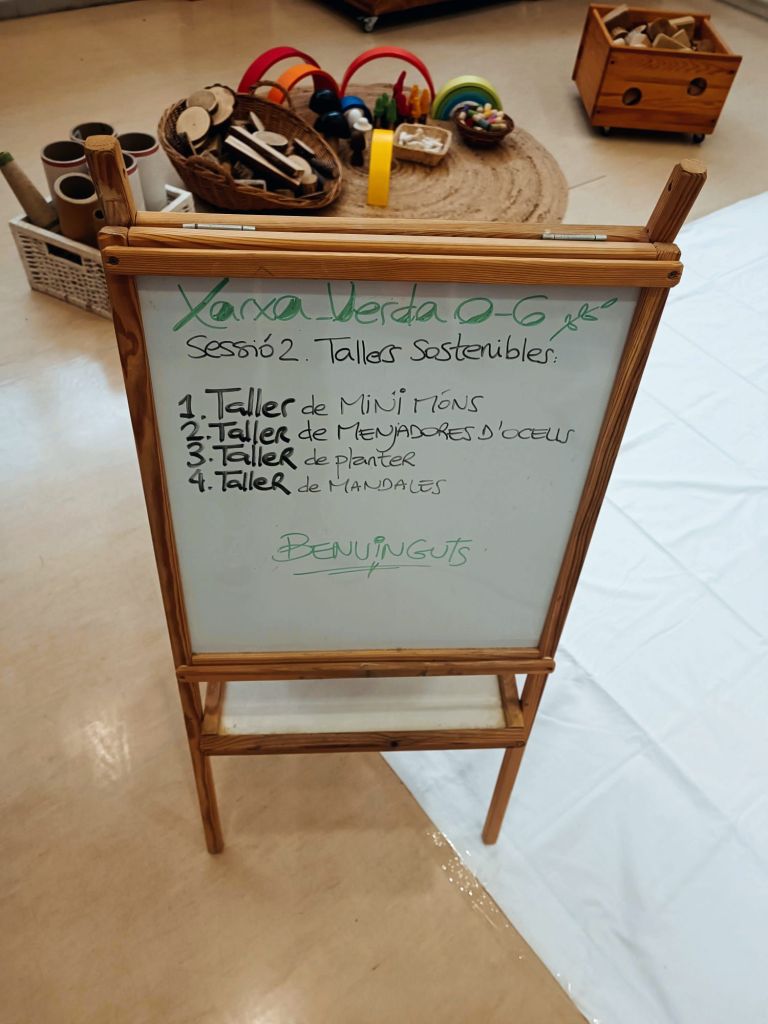 Xarxa Verda 0-6
Sessió 2. Tallers Sostenibles:
1. Taller de MINI MÓNS
2. Taller de MENJADORES D'OCELLS
3. Taller de planter
4. Taller de MANDALES
BENVINGUTS